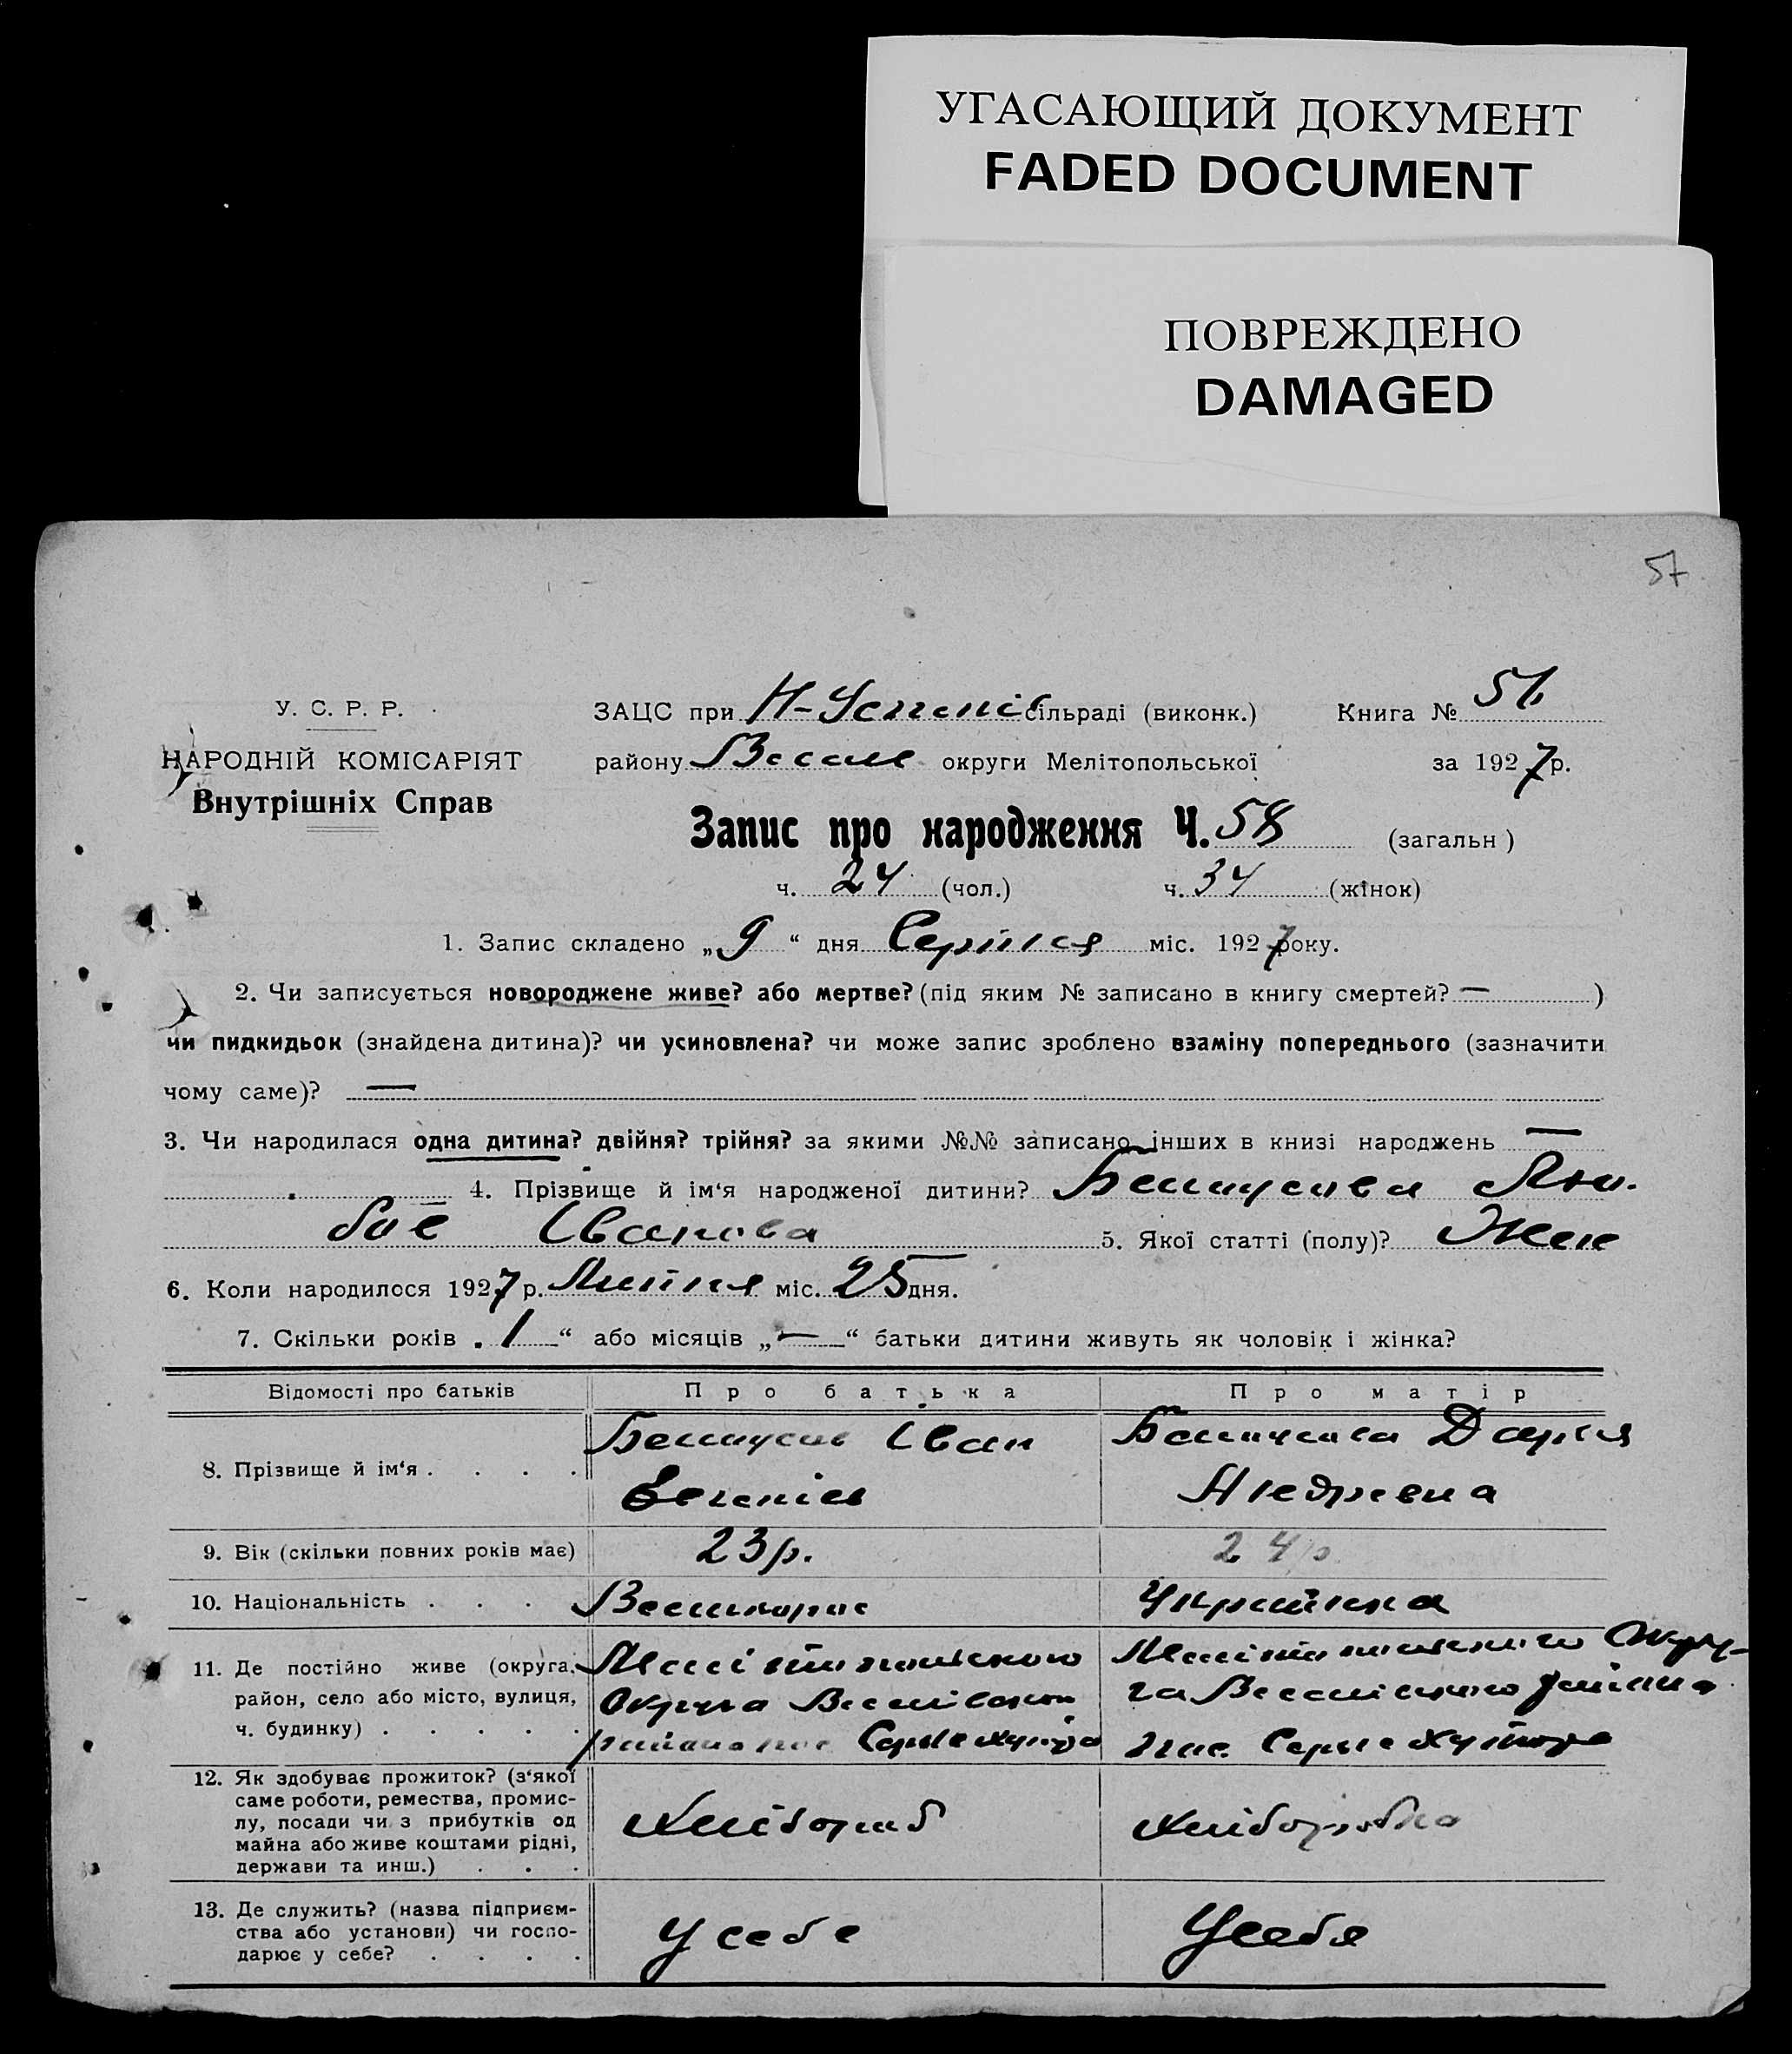 УГАСАЮЩИЙ ДОКУМЕНТ
FADED DOCUMENT
ПОВРЕЖДЕНО
DAMAGED
57
У. С. Р. Р.
НАРОДНІЙ КОМІСАРІЯТ
Внутрішніх Справ
ЗАЦС при Н-Успені сільраді (виконк.) Книга № 51
району Весел округи Мелітопольської за 1927 р.
Запис про народження Ч. 58 (загальн)
ч. 24 (чол.) ч. 34 (жінок)
1. Запис складено „9“ дня Серпня міс. 1927 року.
2. Чи записується новороджене живе? або мертве? (під яким № записано в книгу смертей? — )
чи пидкидьок (знайдена дитина)? чи усиновлена? чи може запис зроблено взаміну попереднього (зазначити
чому саме)? —
3. Чи народилася одна дитина? двійня? трійня? за якими №№ записано інших в книзі народжень —
4. Прізвище й ім‘я народженої дитини? Лю-
бов Іванова 5. Якої статті (полу)? Жен
6. Коли народилося 1927 р. Липня міс. 25 дня.
7. Скільки років „1“ або місяців „—“ батьки дитини живуть як чоловік і жінка?
Відомості про батьків Про батька Про матір
8. Прізвище й ім‘я . . . . Іван Дарія
Андревна
9. Вік (скільки повних років має) 23 р. 24 р
10. Національність . . . Великорос Українка
11. Де постійно живе (округа, район, село або місто, вулиця, ч. будинку) . . . . .
Мелітопольского
Округа Веселівского
района пос. Серые Хутора
Мелітопольского Окру-
га Веселівского района
пос. Серые Хутора
12. Як здобуває прожиток? (з‘якої
саме роботи, ремества, промис-
лу, посади чи з прибутків од
майна або живе коштами рідні,
держави та инш.) . . .
Хлібороб Хліборобка
13. Де служить? (назва підприєм-
ства або установи) чи госпо-
дарює у себе? . . . .
У себе У себя